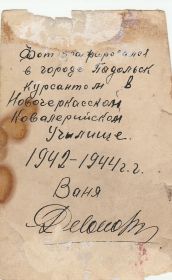 Фотографирован
в городе Падольск
Курсантом в
Новочеркасском
Ковалерийском
Училище.
1942-1944 г.г.
Ваня